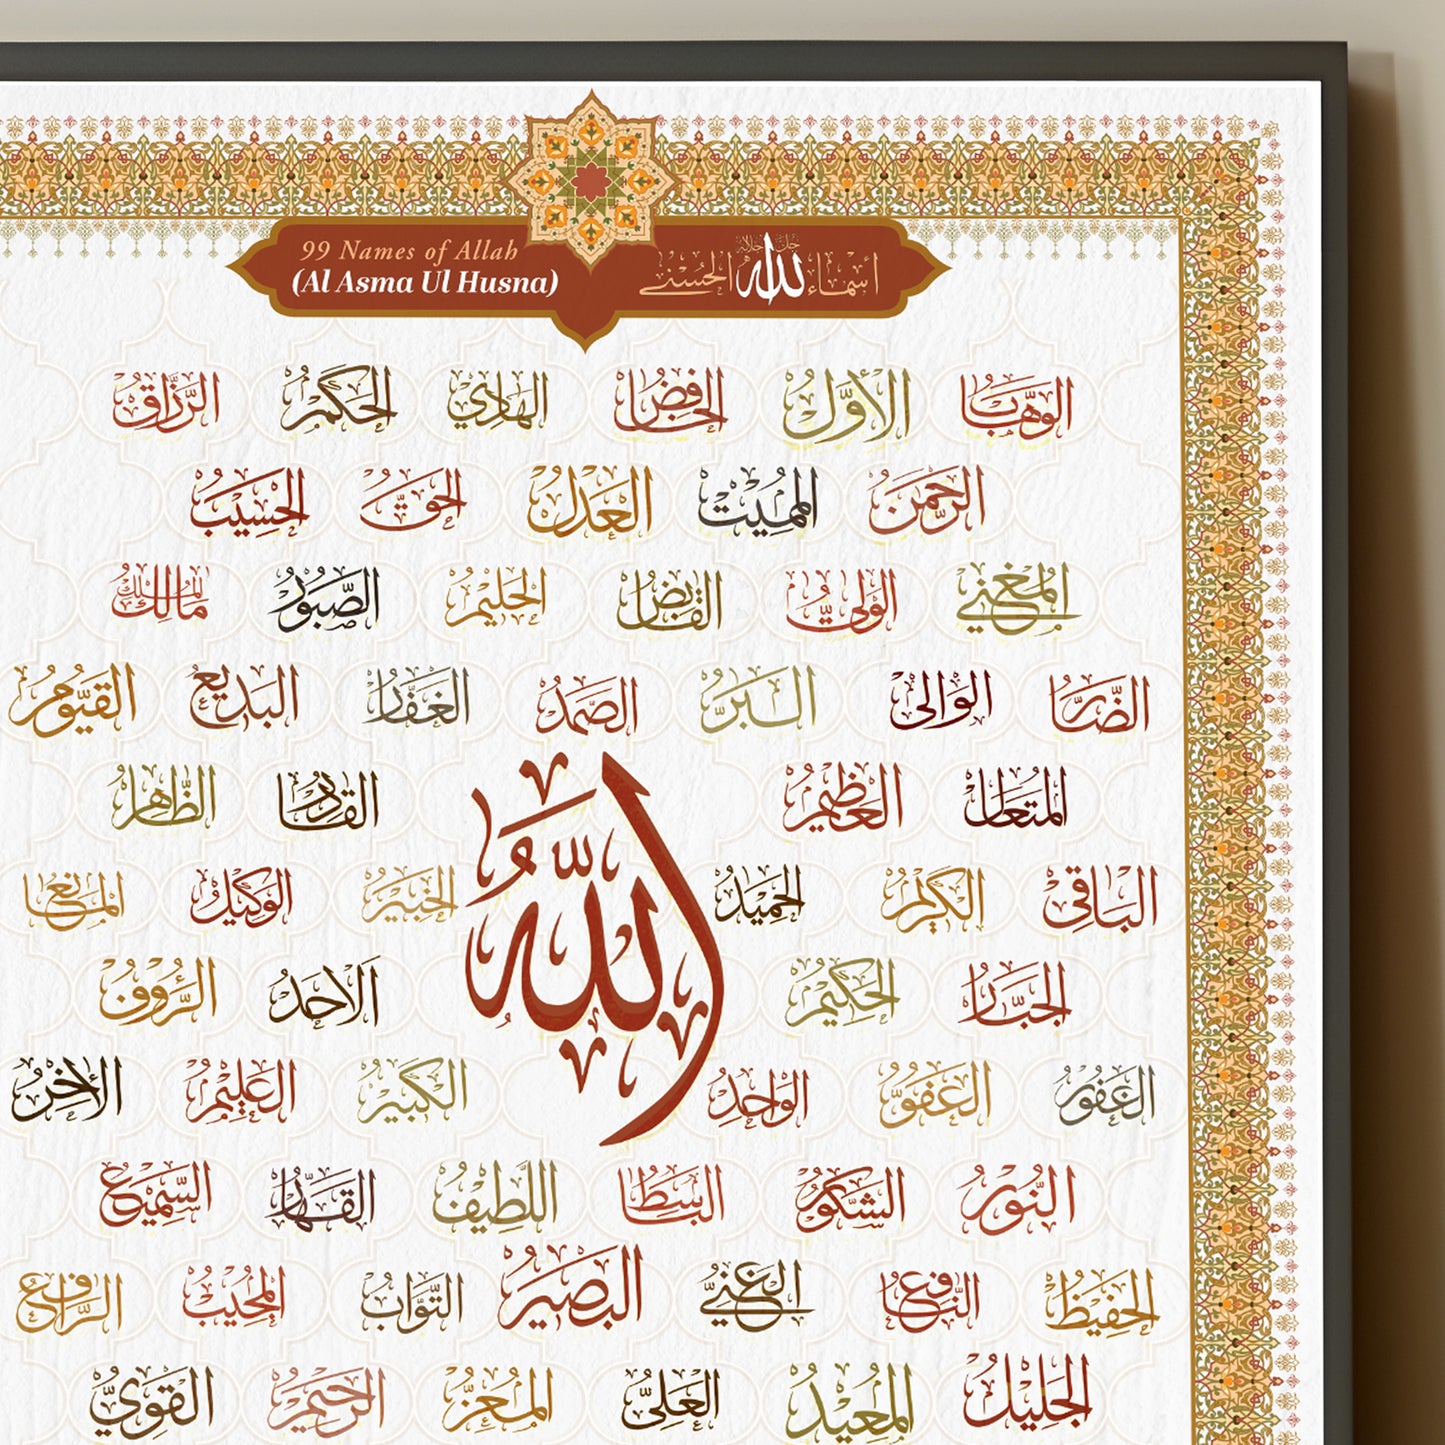 99 Names of Allah
(Al Asma Ul Husna)
أسماء الله الحسنى
جل جلاله
الوهاب الأول الخافض الهادي الحكم الرزاق
الرحمن المميت العدل الحق الحسيب
المغني الولي القابض الحليم الصبور مالك الملك
الضار الوالي البر الصمد الغفار البديع القيوم
المتعال العظيم الله القادر الظاهر
الباقي الكريم الحميد الخبير الوكيل المانع
الجبار الحكيم الاحد الرؤوف
الغفور العفو الواحد الكبير العليم الآخر
النور الشكور الباسط اللطيف القهار السميع
الحفيظ النافع الغني البصير التواب المجيب الرافع
الجليل المعيد العلي المعز الرحيم القوي